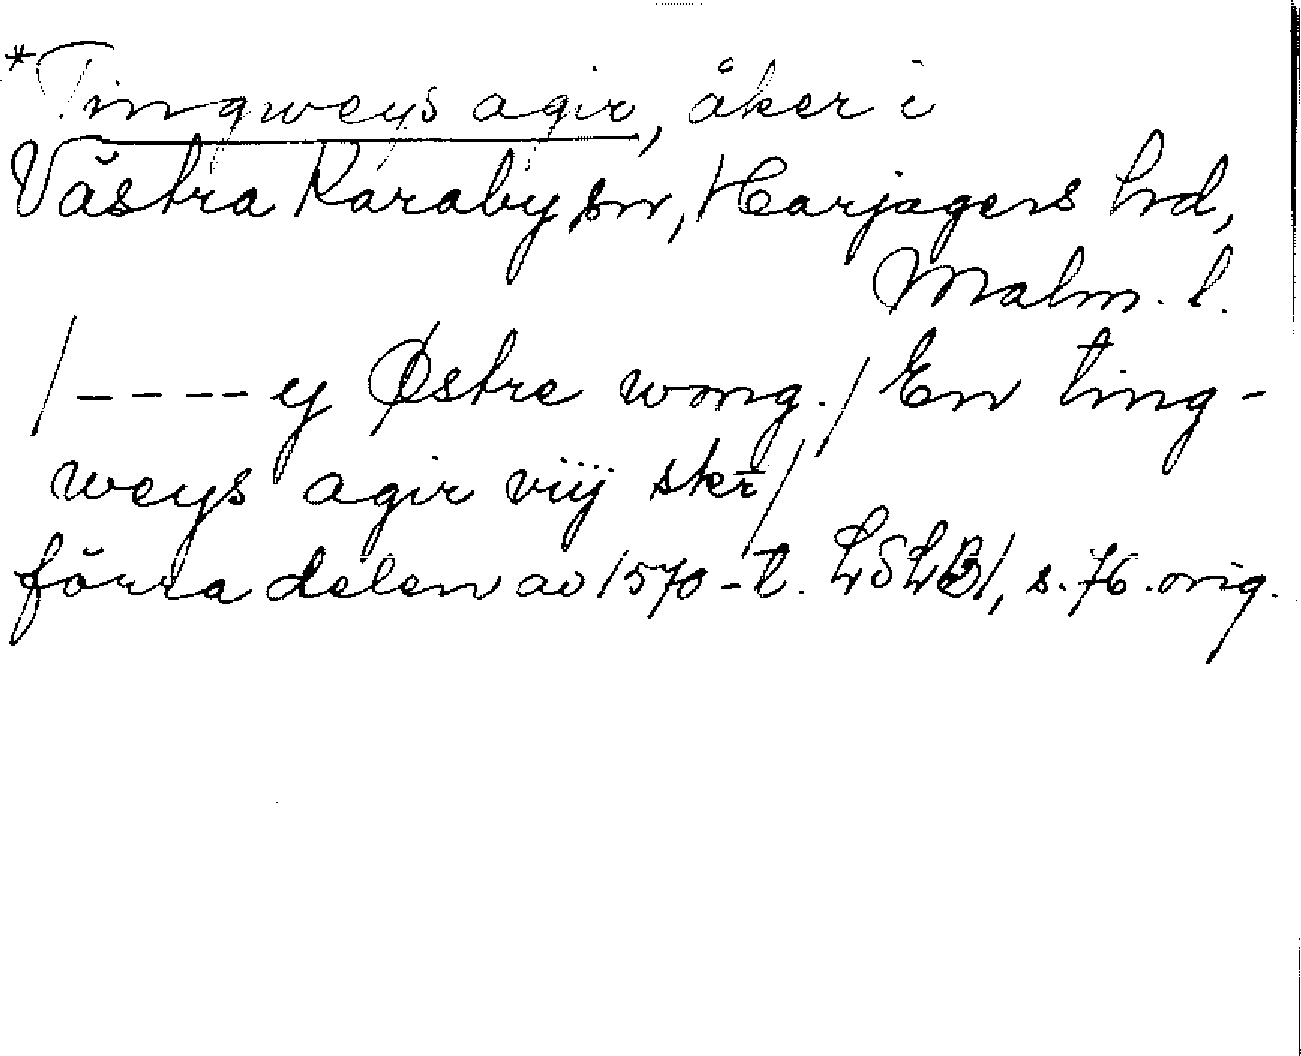 *Tingweys agir, åker i
Västra Karaby sn, Harjagers hd,
Malm. l.
/---- ey Østre wong./ En ting-
weys agir viij skr̄/
förra delen av 1570-t. LSLB1, s. 76. orig.